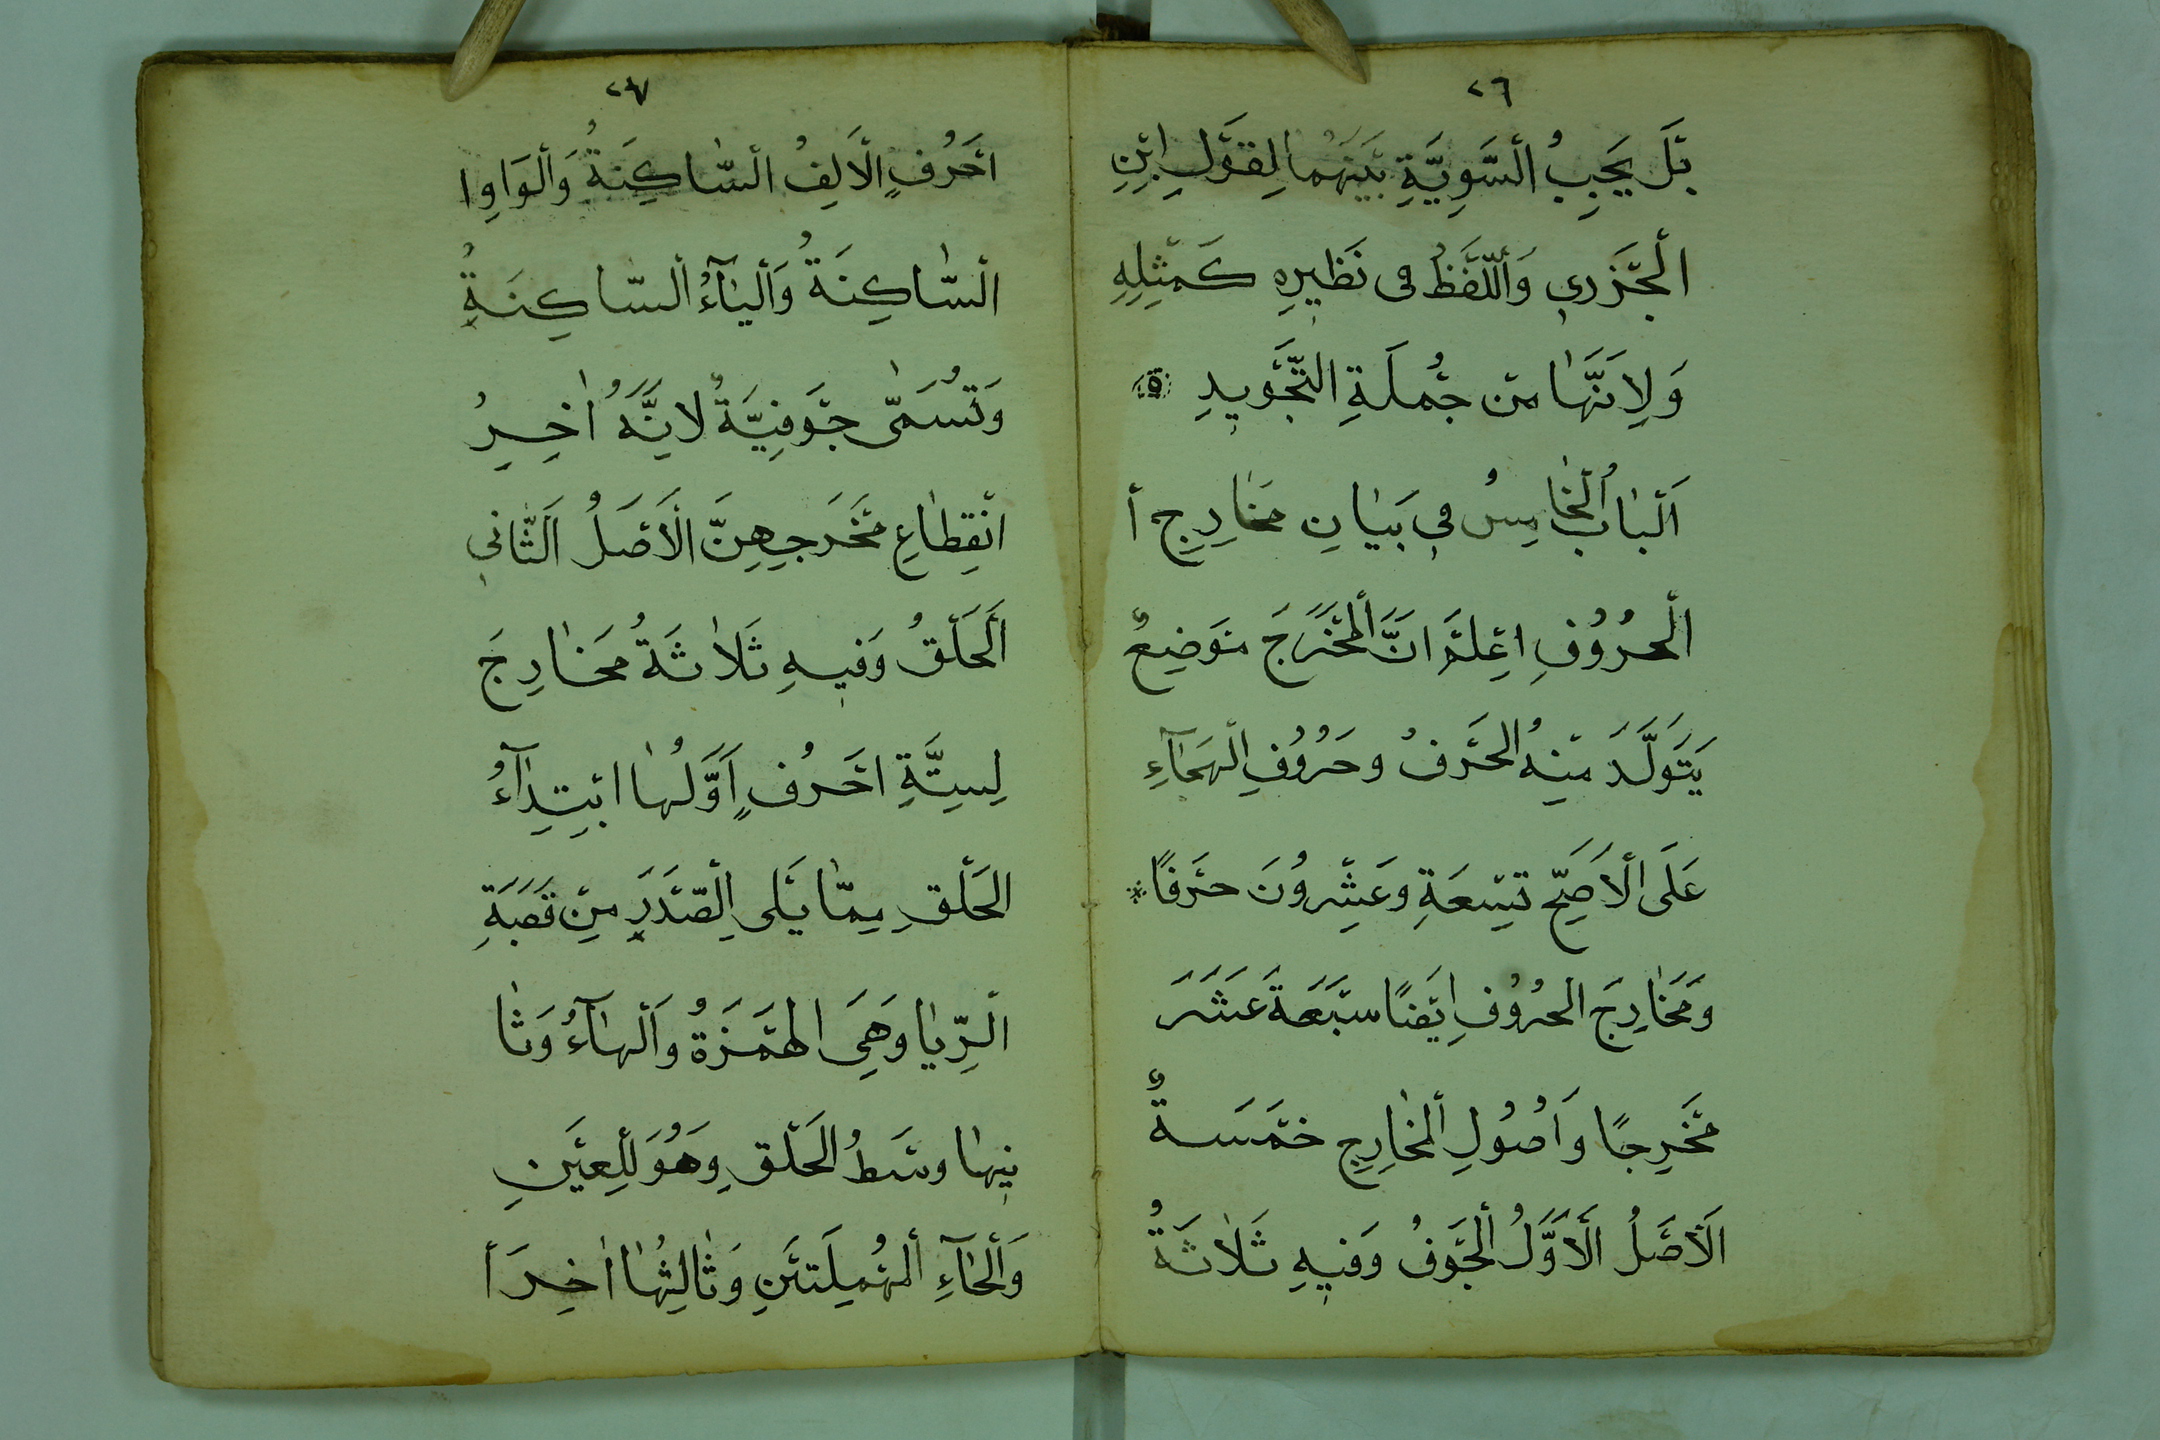 ٢٦
بَلْ يَجِبُ السَّوِيَّةِ بَيْنَهُمَا لِقَوْلِ ابْنِ
الْجَزْرِي وَاللَّفْظُ فِى نَظِيرِهِ كَمِثْلِهِ
وَلِاَنَّهَا مِنْ جُمْلَةِ التَّجْوِيدِ
اَلْبَابُ الْخَامِسُ فِي بَيَانِ مَخَارِجِ أ
الْحُرُوفِ اِعْلَمْ اَنَّ الْمَخْرَجَ مَوْضِعٌ
يَتَوَلَّدَ مِنْهُ الْحَرْفُ وحُرُوُفِ الْهَجَآءِ
عَلَى الْاَصَحِّ تِسْعَةِ وعَشِْرُونَ حَرْفًا
وَمَخَارِجَ الحُرُوُفِ اَيْضًا سَبْعَةَ عَشَرَ
مَخْرِجًا وَاُصُولِ الْمَخَارِجِ خَمْسَةٌ
اَلْاَصْلُ الْاَوَّلُ الْجَوْفُ وَفِيهِ ثَلَاثَةُ
٢٧
اَحْرُفٍ الْاَلِفُ السَّاكِنَةُ وَالْوَاوِا
السَّاكِنَةُ وَالْيَآءُ السَّاكِنَةِ
وَتُسَمَّى جَوْفِيَّةُ لِاَنَّهُ اٰخِرُ
انْقِطَاعِ مَخْرَجِهِنَّ الْاَصْلُ الثَّانِي
اَلْحَلْقُ وَفِيهِ ثَلَاثَةُ مَخَارِجَ
لِسِتَّةِ اَحْرُفٍ اَوَّلُهَا اِبْتِدَآءُ
الحَلْقِ مِمَّا يَلَى الصَّدْرِ مِنْ قَصَبَةِ
الرِّيَا وَهِىَ الْهَمْزَةُ وَالْهَآءُ وَثَا
نِيهَا وسَطُ الْحَلْقِ وَهُوَ لِلْعَيْنِ
وَالْحَآءِ الْمُهْمِلَتَيْنِ وَثَالِثُهَا اٰخِرَ أ